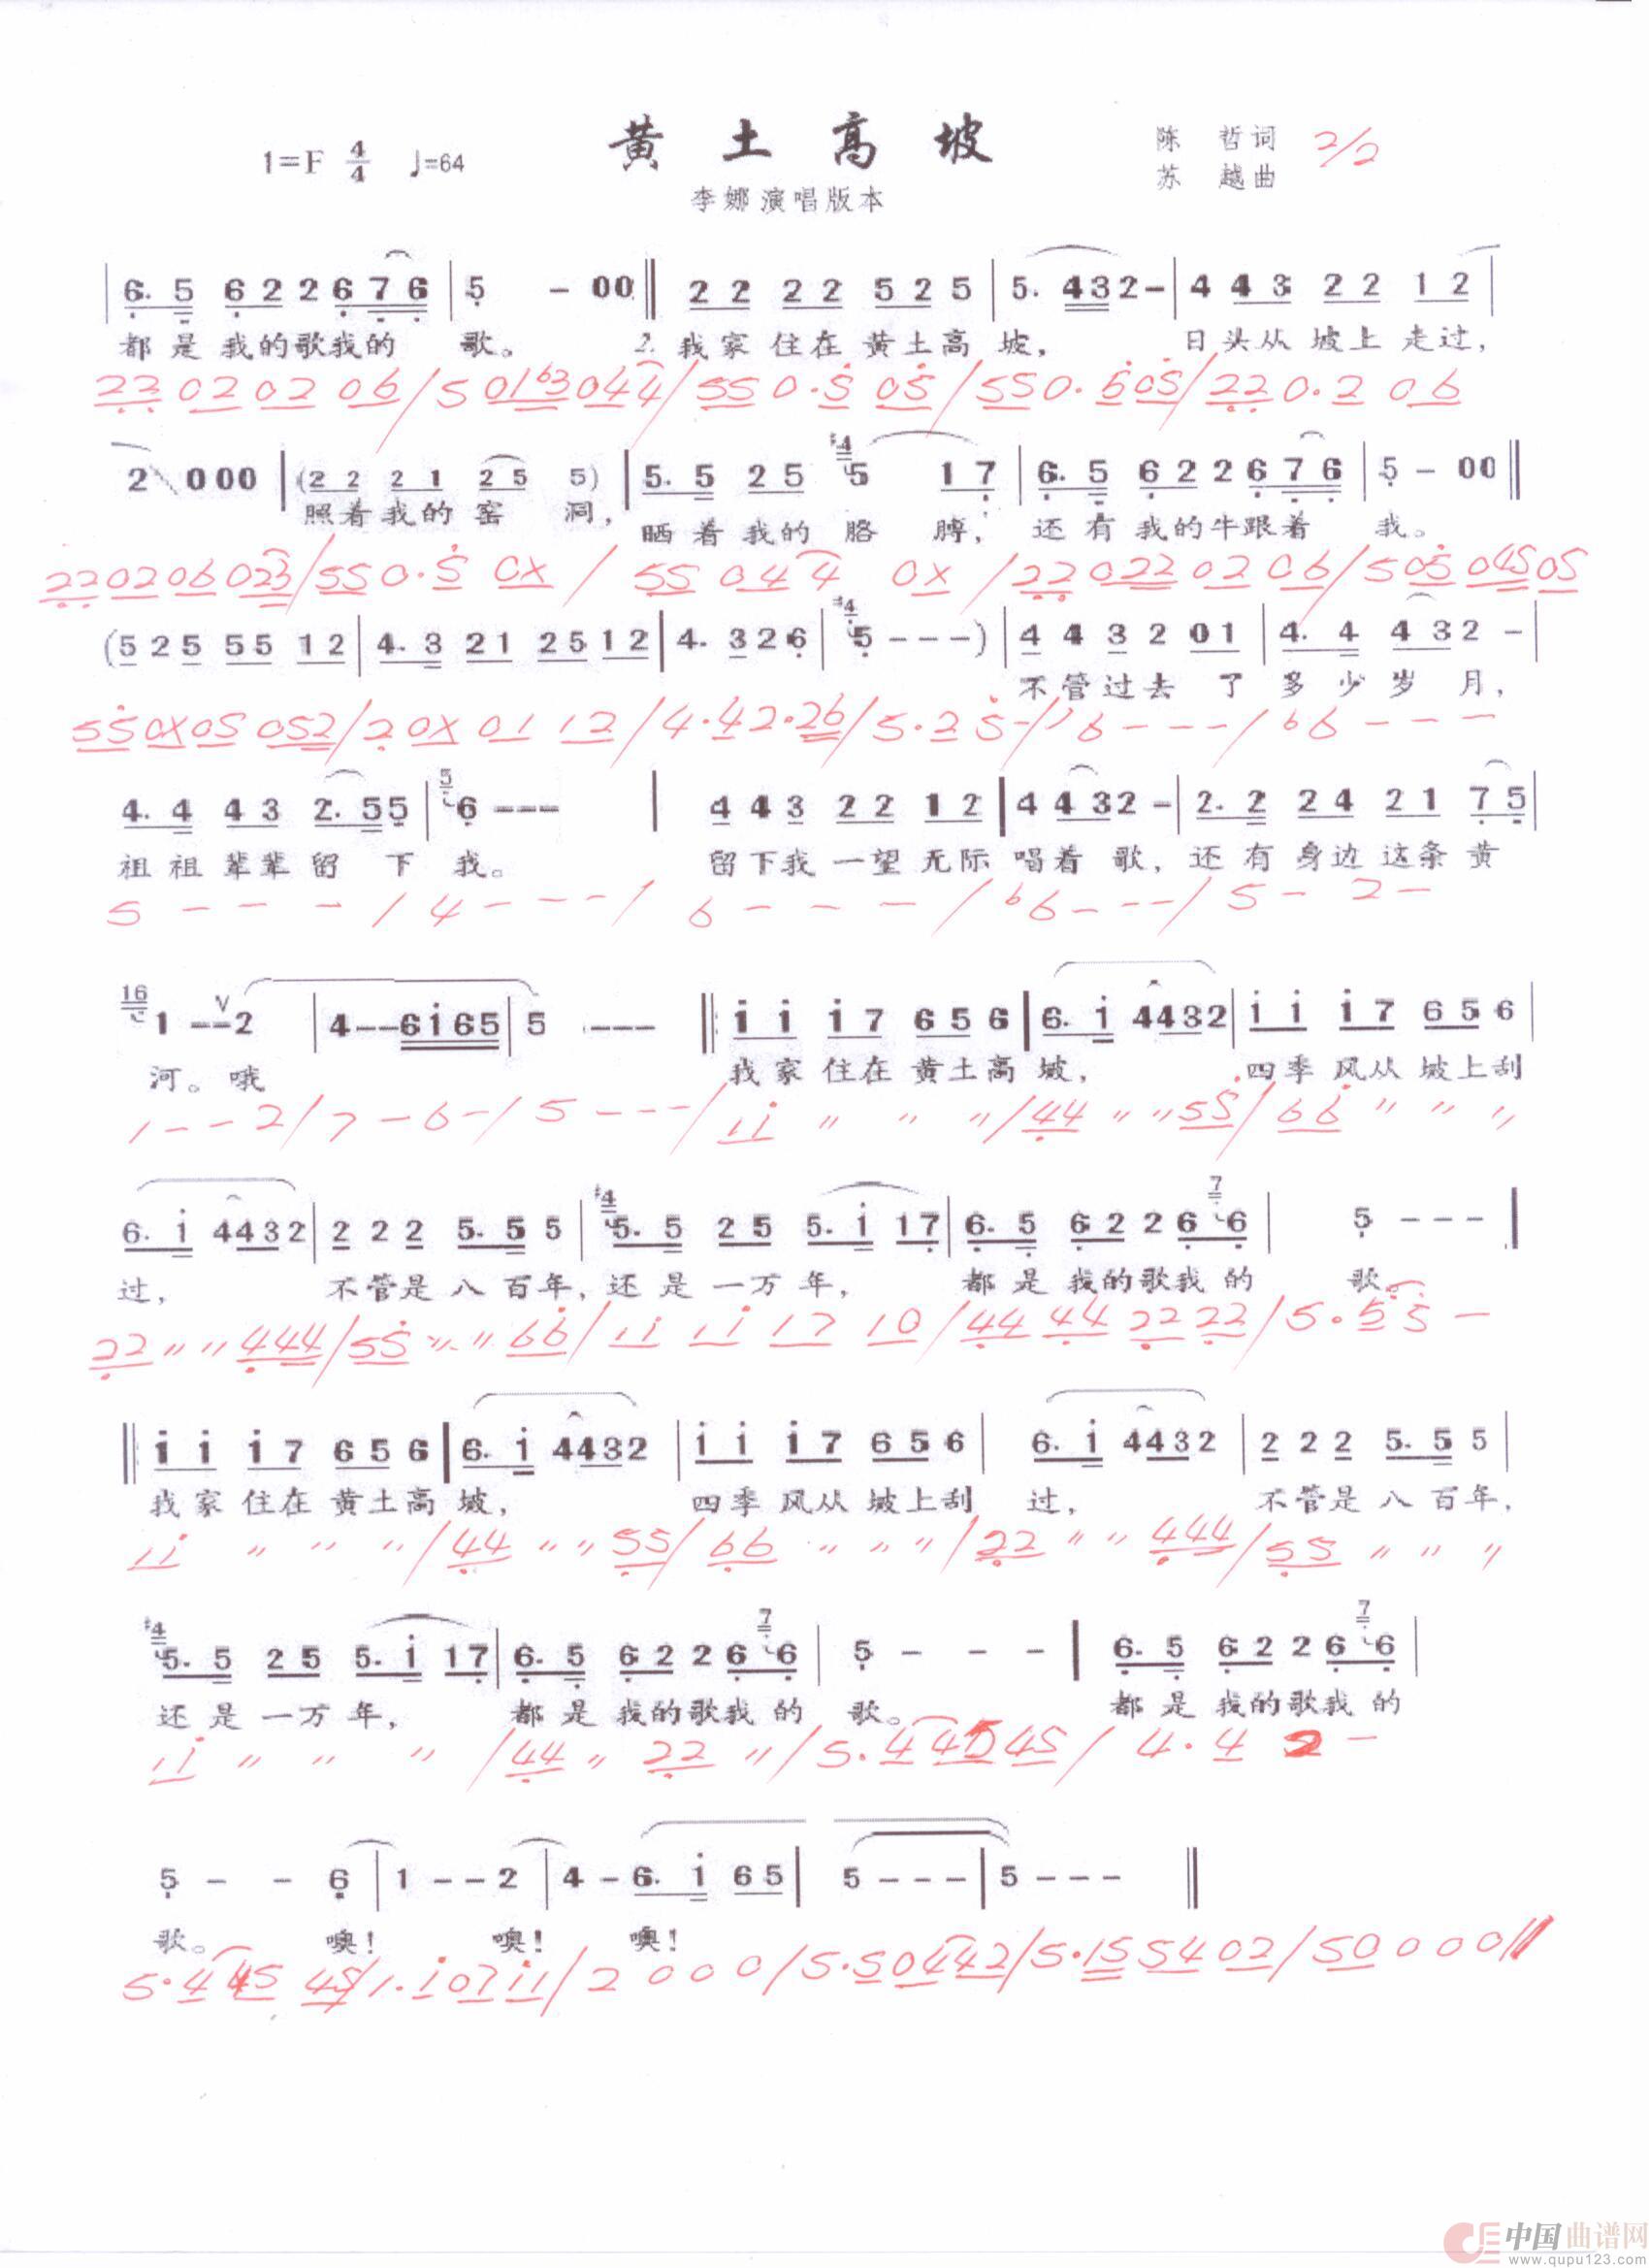 黄土高坡
1=F 4/4 ♩=64
李娜演唱版本
陈 哲词
苏 越曲
2/2
6. 5 6 2 2 6 7 6 | 5 - 0 0 || 2 2 2 2 5 2 5 | 5. 4 3 2 - | 4 4 3 2 2 1 2 |
都是我的歌我的 歌。 2. 我家住在黄土高坡, 日头从坡上走过,
2 2 0 2 0 2 0 6 / 5 0 1 b3 0 4 4 / 5 5 0. 5 0 5 / 5 5 0. 5 0 5 / 2 2 0. 2 0 6
2 0 0 0 | (2 2 2 1 2 5 5) | 5. 5 2 5 #4 5 1 7 | 6. 5 6 2 2 6 7 6 | 5 - 0 0 ||
照着我的窑 洞, 晒着我的胳 膊, 还有我的牛跟着 我。
2 2 0 2 0 6 0 2 3 / 5 5 0. 5 0 X / 5 5 0 4 4 0 X / 2 2 0 2 2 0 2 0 6 / 5 0 5 0 4 5 0 5
(5 2 5 5 5 1 2 | 4. 3 2 1 2 5 1 2 | 4. 3 2 6 | #4 5 - - -) | 4 4 3 2 0 1 | 4. 4 4 3 2 - |
不管过去 了多少岁 月,
5 5 0 X 0 5 0 5 2 / 2 0 X 0 1 1 2 / 4. 4 2. 2 6 / 5. 2 5 - / b6 - - - / b6 - - -
4. 4 4 3 2. 5 5 | 5 6 - - - | 4 4 3 2 2 1 2 | 4 4 3 2 - | 2. 2 2 4 2 1 7 5 |
祖祖辈辈留 下 我。 留下我一望无际唱着歌, 还有身边这条黄
5 - - - / 4 - - - / 6 - - - / b6 - - - / 5 - 2 -
16 1 - - V 2 | 4 - - 6 1 6 5 | 5 - - - ||: 1 1 1 7 6 5 6 | 6. 1 4 4 3 2 | 1 1 1 7 6 5 6 |
河。哦 我家住在黄土高坡, 四季风从坡上刮
1 - - 2 / 7 - 6 - / 5 - - - / 1 1 〃 〃 〃 / 4 4 〃 〃 5 5 / 6 6 〃 〃 〃
6. 1 4 4 3 2 | 2 2 2 5. 5 5 | #4 5. 5 2 5 5. 1 1 7 | 6. 5 6 2 2 6 7 6 | 5 - - - |
过, 不管是八百年, 还是一万年, 都是我的歌我的 歌。
2 2 〃 〃 4 4 4 / 5 5 〃 〃 6 6 / 1 1 1 1 1 7 1 0 / 4 4 4 4 2 2 2 2 / 5. 5 5 -
|| 1 1 1 7 6 5 6 | 6. 1 4 4 3 2 | 1 1 1 7 6 5 6 | 6. 1 4 4 3 2 | 2 2 2 5. 5 5 |
我家住在黄土高坡, 四季风从坡上刮 过, 不管是八百年,
1 1 〃 〃 〃 / 4 4 〃 〃 5 5 / 6 6 〃 〃 〃 / 2 2 〃 〃 4 4 4 / 5 5 〃 〃 〃
#4 5. 5 2 5 5. 1 1 7 | 6. 5 6 2 2 6 7 6 | 5 - - - | 6. 5 6 2 2 6 7 6 |
还是一万年, 都是我的歌我的 歌。 都是我的歌我的
1 1 〃 〃 〃 / 4 4 〃 2 2 〃 / 5. 4 4 5 4 5 / 4. 4 2 -
5 - - 6 | 1 - - 2 | 4 - 6. 1 6 5 | 5 - - - | 5 - - - ||
歌。 噢! 噢! 噢!
5. 4 4 5 4 5 / 1. 1 0 7 1 1 / 2 0 0 0 / 5. 5 0 4 4 2 / 5. 1 5 5 4 0 2 / 5 0 0 0 0 //
中国曲谱网
www.qupu123.com